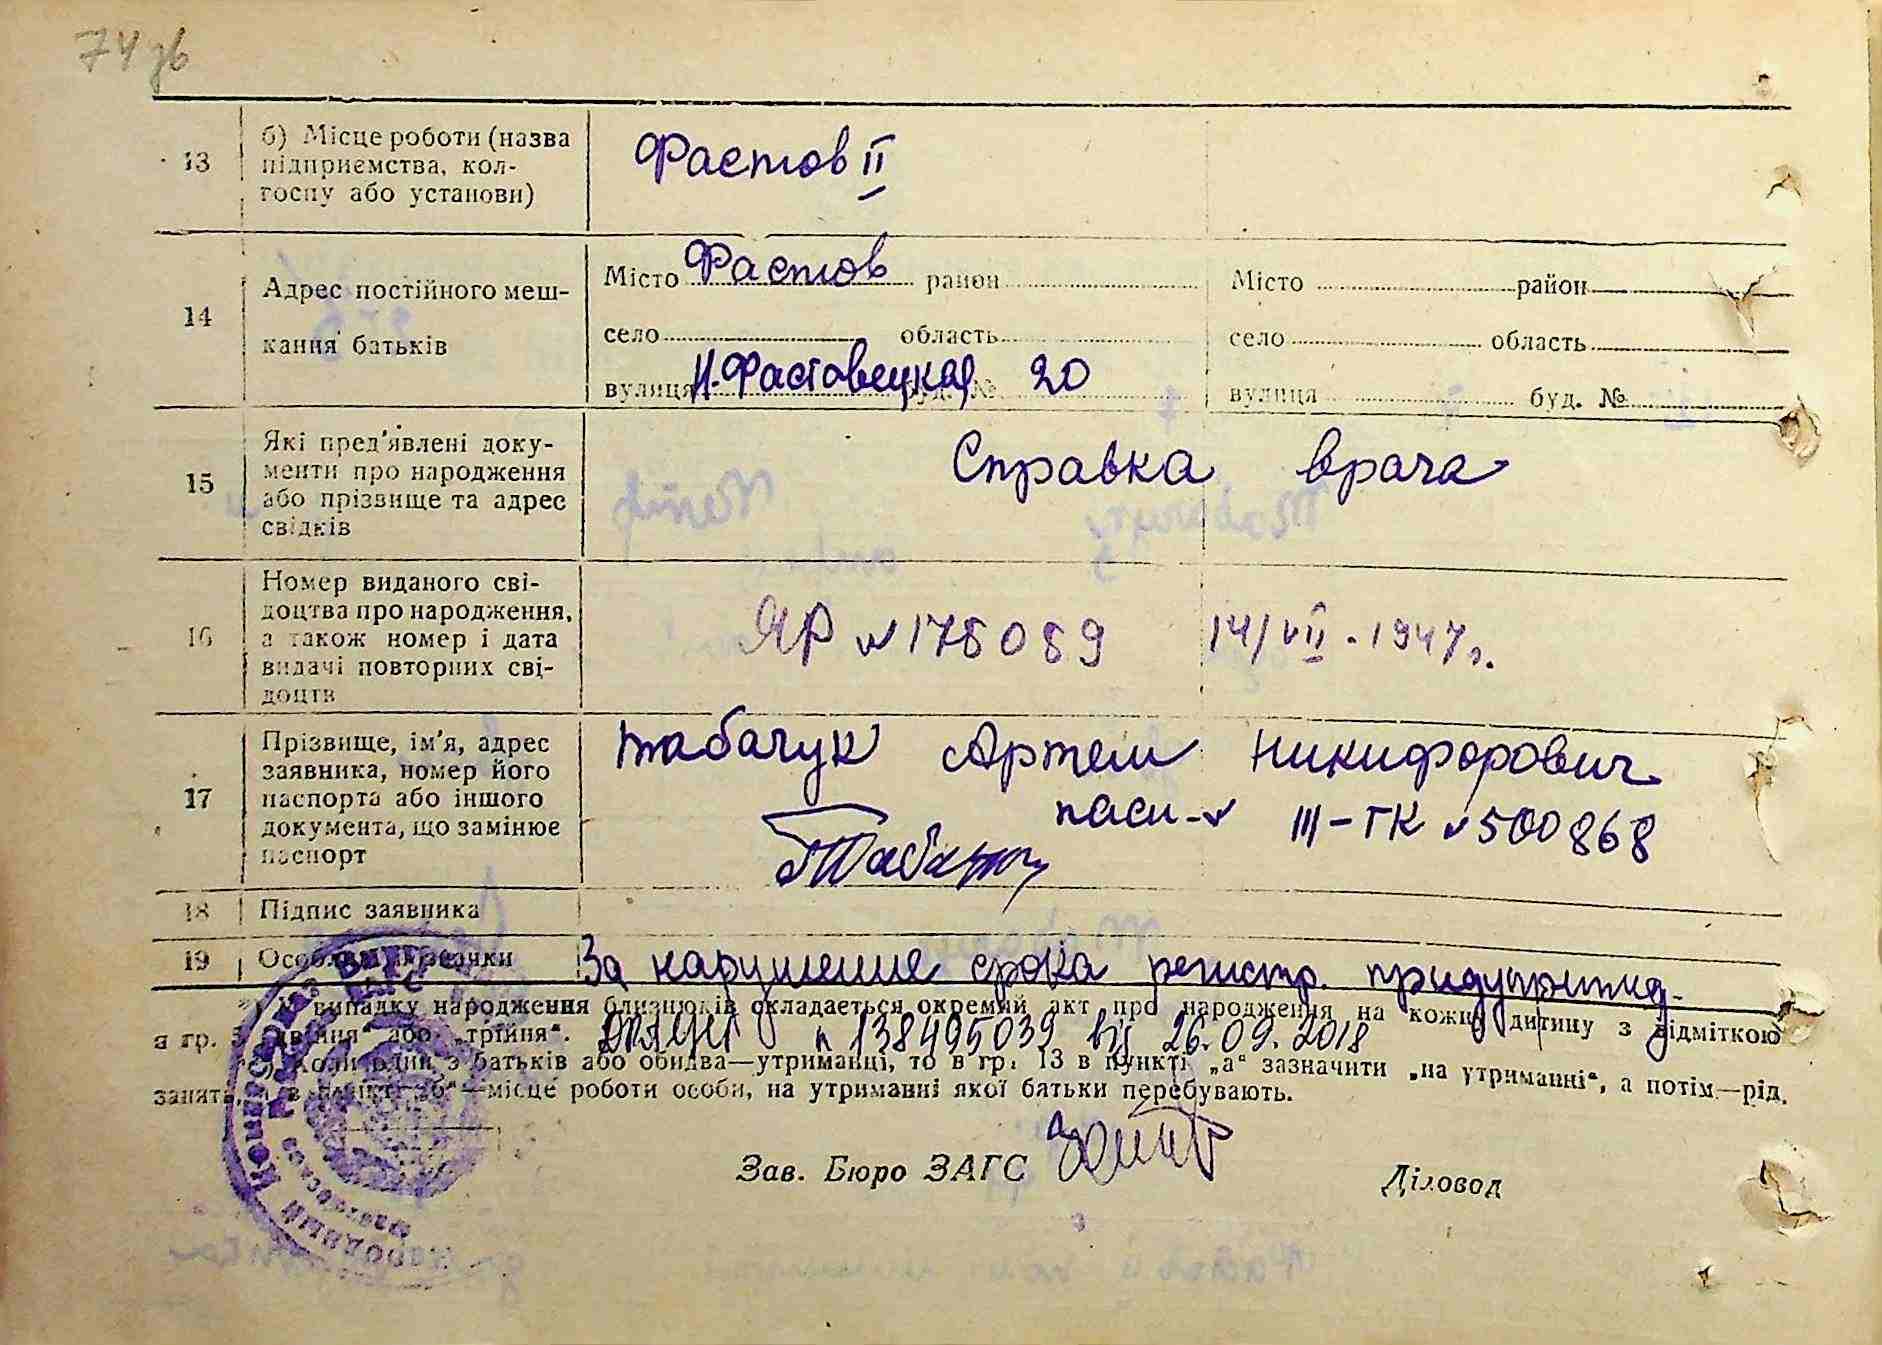 74 зв
13
б) Місце роботи (назва
підприємства, кол-
госпу або установи)
Фастов II
14
Адрес постійного меш-
кання батьків
Місто Фастов район
село область
вулиця Н. Фастовецкая буд. № 20
Місто район
село область
вулиця буд. №
15
Які пред'явлені доку-
менти про народження
або прізвище та адрес
свідків
Справка врача
16
Номер виданого сві-
доцтва про народження,
а також номер і дата
видачі повторних сві-
доцтв
ЯР № 175089 14/VII - 1947 г.
17
Прізвище, ім'я, адрес
заявника, номер його
паспорта або іншого
документа, що замінює
паспорт
Табачук Артем Никифорович
пасп-№ III-ГК № 500868
18
Підпис заявника
19
Особливі позначки
За нарушение срока регистр. предупрежд.
*) У випадку народження близнюків складається окремий акт про народження на кожну дитину з відміткою
в гр. 3 „двійня“ або „трійня“.
n 138495039 від 26.09.2018
Коли один з батьків або обидва—утриманці, то в гр. 13 в пункті „а“ зазначити „на утриманні“, а потім—рід
занять, а в пункті „б“—місце роботи особи, на утриманні якої батьки перебувають.
Зав. Бюро ЗАГС
Діловод